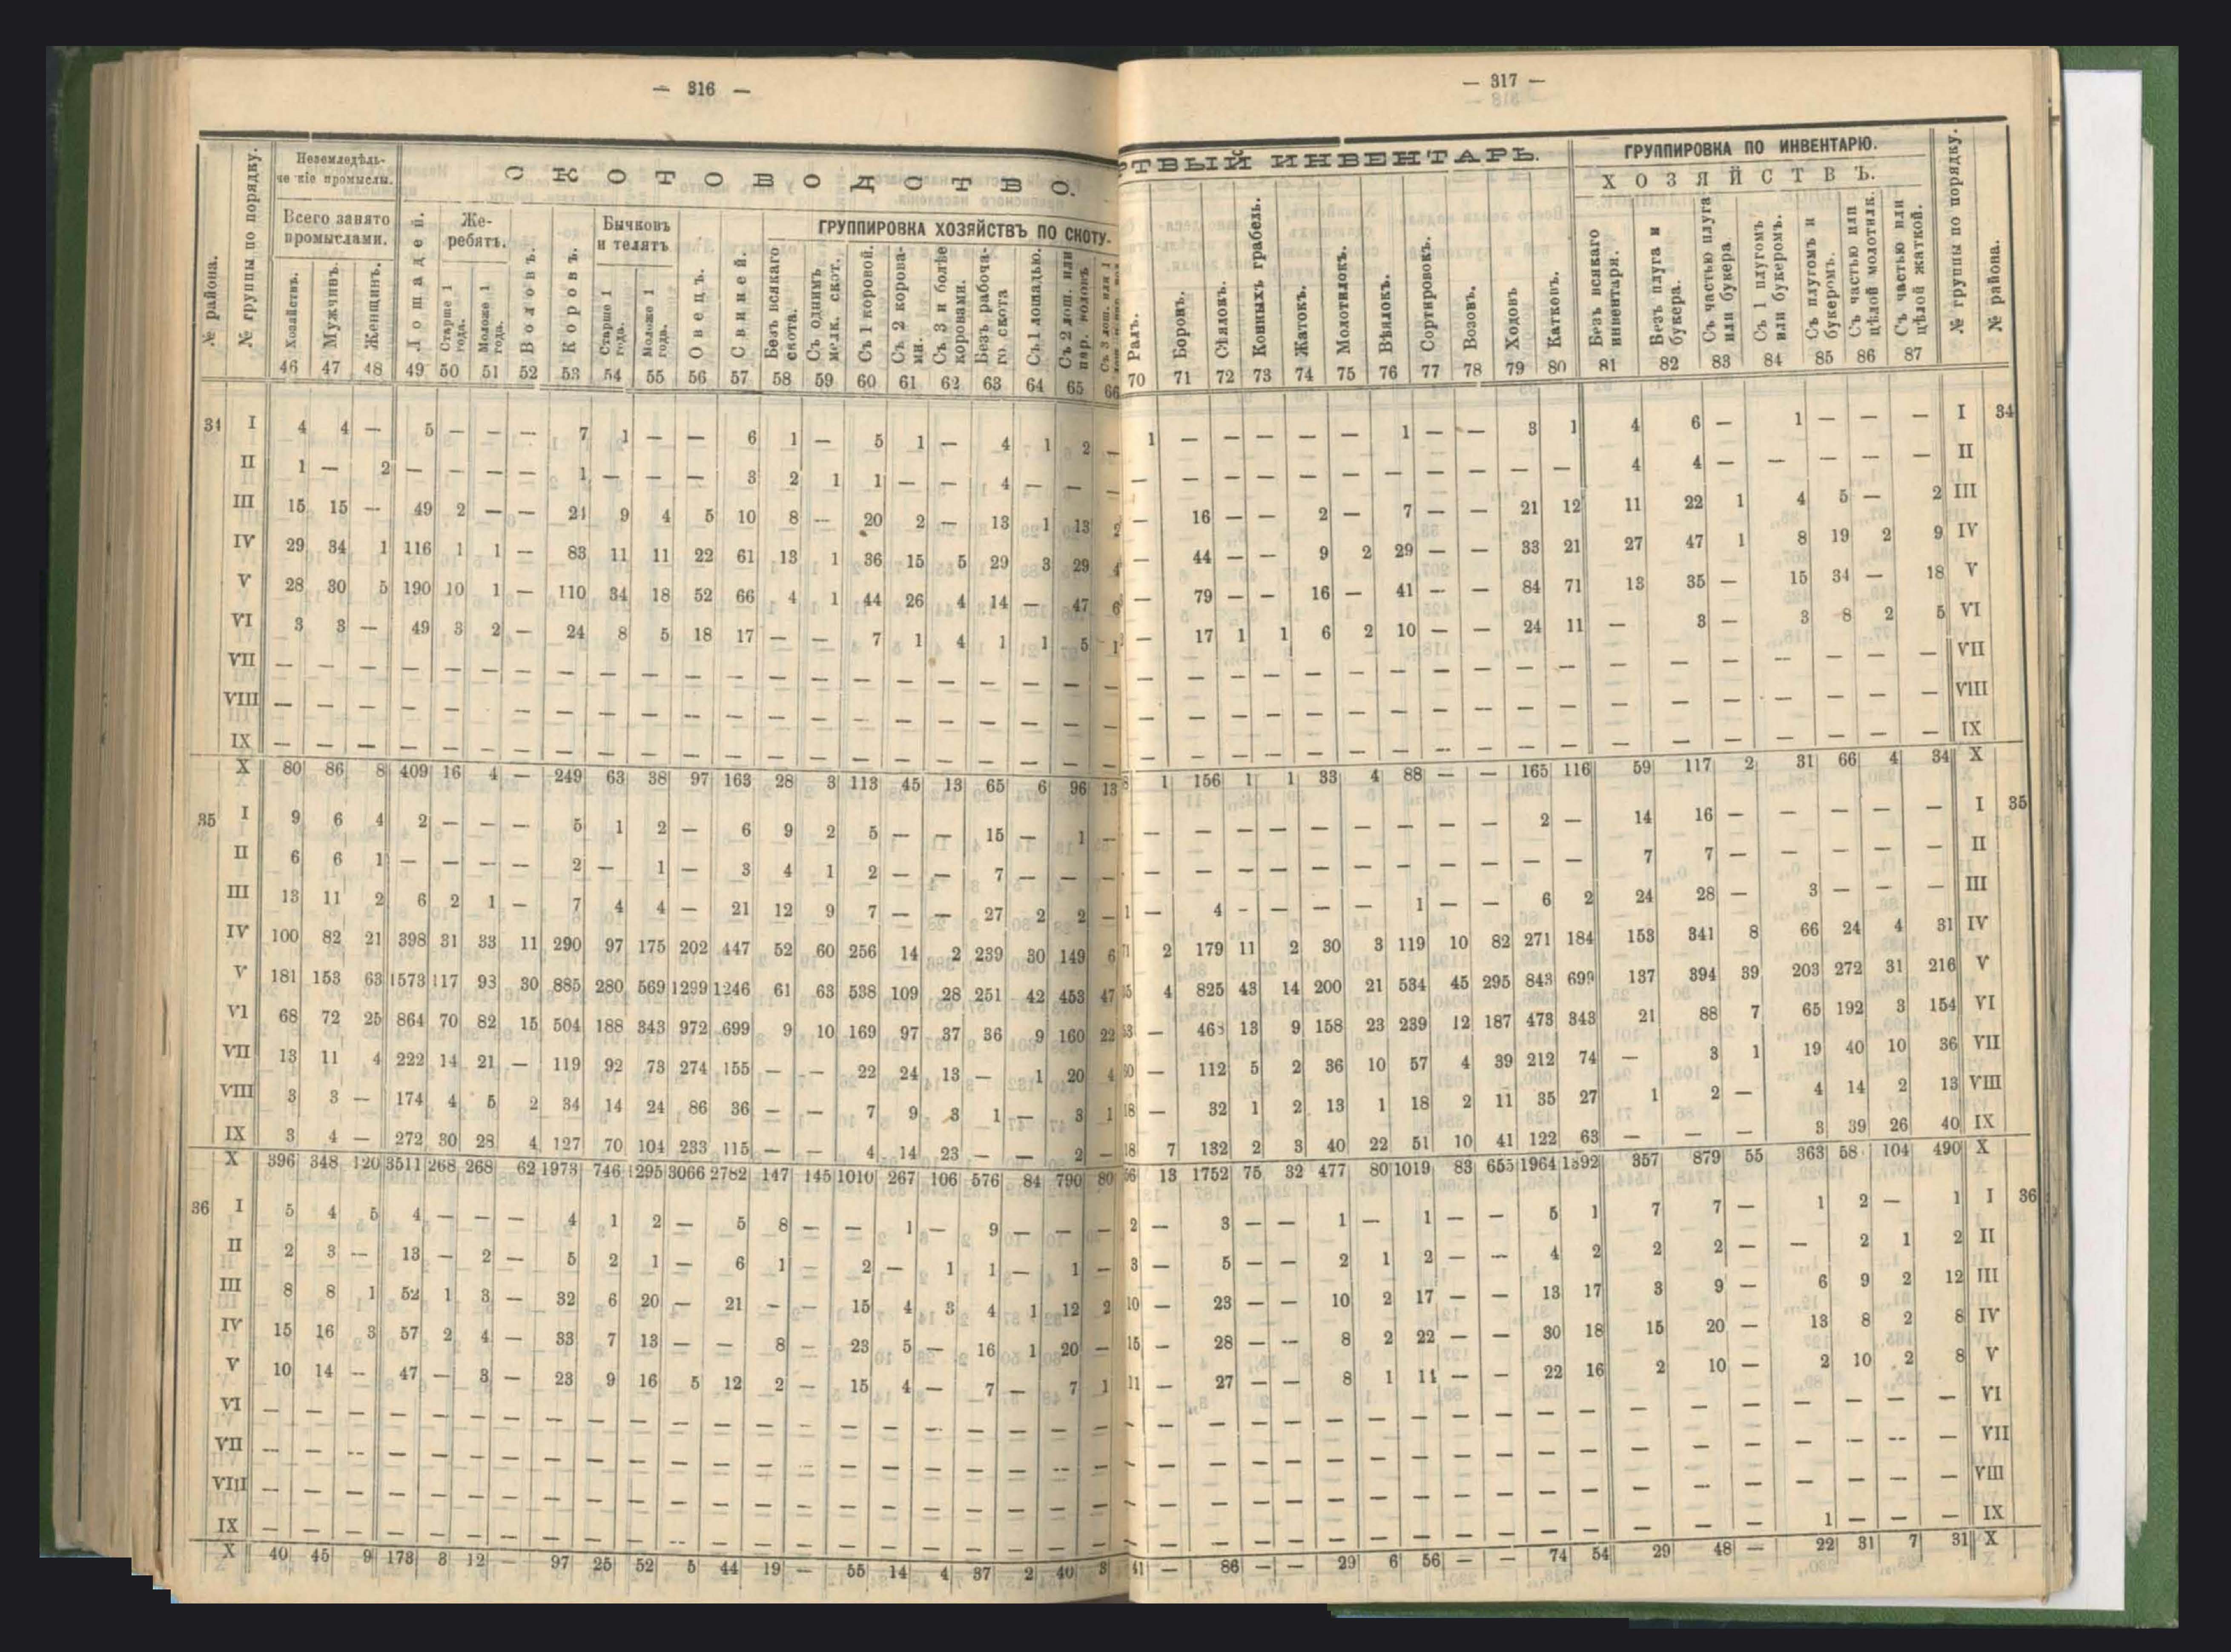 — 316 —
№ района.
№ группы по порядку.
Неземледѣль-
че кіе промыслы.
Всего занято
промыслами.
Хозяйствъ.
Мужчинъ.
Женщинъ.
СКОТОВОДСТВО.
Лошадей.
Же-
ребятъ.
Старше 1
года.
Моложе 1
года.
Воловъ.
Коровъ.
Бычковъ
и телятъ
Старше 1
года.
Моложе 1
года.
Овецъ.
Свиней.
ГРУППИРОВКА ХОЗЯЙСТВЪ ПО СКОТУ.
Безъ всякаго
скота.
Съ однимъ
мелк. скот.
Съ 1 коровой.
Съ 2 корова-
ми.
Съ 3 и болѣе
коровами.
Безъ рабоча-
го скота
Съ 1 лошадью.
Съ 2 лош. или
пар. воловъ
46 47 48 49 50 51 52 53 54 55 56 57 58 59 60 61 62 63 64 65 66
34 I 4 4 — 5 — — — 7 1 — — 6 1 — 5 1 — 4 1 2 —
II 1 — 2 — — — — 1 — — — 3 2 1 1 — — 4 — — —
III 15 15 — 49 2 — — 24 9 4 5 10 8 — 20 2 — 13 1 13 2
IV 29 34 1 116 1 1 — 83 11 11 22 61 13 1 36 15 5 29 3 29 4
V 28 30 5 190 10 1 — 110 34 18 52 66 4 1 44 26 4 14 — 47 6
VI 3 3 — 49 3 2 — 24 8 5 18 17 — — 7 1 4 1 1 5 1
VII — — — — — — — — — — — — — — — — — — — — —
VIII — — — — — — — — — — — — — — — — — — — — —
IX — — — — — — — — — — — — — — — — — — — — —
X 80 86 8 409 16 4 — 249 63 38 97 163 28 3 113 45 13 65 6 96 13
35 I 9 6 4 2 — — — 5 1 2 — 6 9 2 5 — — 15 — 1 —
II 6 6 1 — — — — 2 — 1 — 3 4 1 2 — — 7 — — —
III 13 11 2 6 2 1 — 7 4 4 — 21 12 9 7 — — 27 2 2 —
IV 100 82 21 398 31 33 11 290 97 175 202 447 52 60 256 14 2 239 30 149 6
V 181 153 63 1573 117 93 30 885 280 569 1299 1246 61 63 538 109 28 251 42 453 47
VI 68 72 25 864 70 82 15 504 188 343 972 699 9 10 169 97 37 36 9 160 22
VII 13 11 4 222 14 21 — 119 92 73 274 155 — — 22 24 13 — 1 20 4
VIII 3 3 — 174 4 5 2 34 14 24 86 36 — — 7 9 3 1 — 3 1
IX 3 4 — 272 30 28 4 127 70 104 233 115 — — 4 14 23 — — 2 —
X 396 348 120 3511 268 268 62 1973 746 1295 3066 2782 147 145 1010 267 106 576 84 790 80
36 I 5 4 5 4 — — — 4 1 2 — 5 8 — — 1 — 9 — — —
II 2 3 — 13 — 2 — 5 2 1 — 6 1 — 2 — 1 1 — 1 —
III 8 8 1 52 1 3 — 32 6 20 — 21 — — 15 4 3 4 1 12 2
IV 15 16 3 57 2 4 — 33 7 13 — — 8 — 23 5 — 16 1 20 —
V 10 14 — 47 — 3 — 23 9 16 5 12 2 — 15 4 — 7 — 7 1
VI — — — — — — — — — — — — — — — — — — — — —
VII — — — — — — — — — — — — — — — — — — — — —
VIII — — — — — — — — — — — — — — — — — — — — —
IX — — — — — — — — — — — — — — — — — — — — —
X 40 45 9 173 3 12 — 97 25 52 5 44 19 — 55 14 4 37 2 40 3
— 317 —
ТВЫЙ ИНВЕНТАРЬ.
Ралъ.
Боронъ.
Сѣялокъ.
Конныхъ грабель.
Жатокъ.
Молотилокъ.
Вѣялокъ.
Сортировокъ.
Возовъ.
Ходовъ
Катковъ.
ГРУППИРОВКА ПО ИНВЕНТАРЮ.
ХОЗЯЙСТВЪ.
Безъ всякаго
инвентаря.
Безъ плуга и
букера.
Съ частью плуга
или букера.
Съ 1 плугомъ
или букеромъ.
Съ плугомъ и
букеромъ.
Съ частью или
цѣлой молотилк.
Съ частью или
цѣлой жаткой.
№ группы по порядку.
№ района.
70 71 72 73 74 75 76 77 78 79 80 81 82 83 84 85 86 87
1 — — — — — 1 — — 3 1 4 6 — 1 — — — I 34
— — — — — — — — — — — 4 4 — — — — — II
— 16 — — 2 — 7 — — 21 12 11 22 1 4 5 — 2 III
— 44 — — 9 2 29 — — 33 21 27 47 1 8 19 2 9 IV
— 79 — — 16 — 41 — — 84 71 13 35 — 15 34 — 18 V
— 17 1 1 6 2 10 — — 24 11 — 3 — 3 8 2 5 VI
— — — — — — — — — — — — — — — — — — VII
— — — — — — — — — — — — — — — — — — VIII
— — — — — — — — — — — — — — — — — — IX
1 156 1 1 33 4 88 — — 165 116 59 117 2 31 66 4 34 X
— — — — — — — — — 2 — 14 16 — — — — — I 35
— — — — — — — — — — — 7 7 — — — — — II
— 4 — — — — 1 — — 6 2 24 28 — 3 — — — III
2 179 11 2 30 3 119 10 82 271 184 153 341 8 66 24 4 31 IV
4 825 43 14 200 21 534 45 295 843 699 137 394 39 203 272 31 216 V
— 463 13 9 158 23 239 12 187 473 343 21 88 7 65 192 3 154 VI
— 112 5 2 36 10 57 4 39 212 74 — 3 1 19 40 10 36 VII
— 32 1 2 13 1 18 2 11 35 27 1 2 — 4 14 2 13 VIII
7 132 2 3 40 22 51 10 41 122 63 — — — 3 39 26 40 IX
13 1752 75 32 477 80 1019 83 655 1964 1392 357 879 55 363 58 104 490 X
2 — 3 — — 1 — 1 — — 5 1 7 7 — 1 2 — 1 I 36
3 — 5 — — 2 1 2 — — 4 2 2 2 — — 2 1 2 II
10 — 23 — — 10 2 17 — — 13 17 3 9 — 6 9 2 12 III
15 — 28 — — 8 2 22 — — 30 18 15 20 — 13 8 2 8 IV
11 — 27 — — 8 1 11 — — 22 16 2 10 — 2 10 2 8 V
— — — — — — — — — — — — — — — — — — VI
— — — — — — — — — — — — — — — — — — VII
— — — — — — — — — — — — — — — — — — VIII
— — — — — — — — — — — — — — 1 — — — IX
41 — 86 — — 29 6 56 — — 74 54 29 48 — 22 31 7 31 X